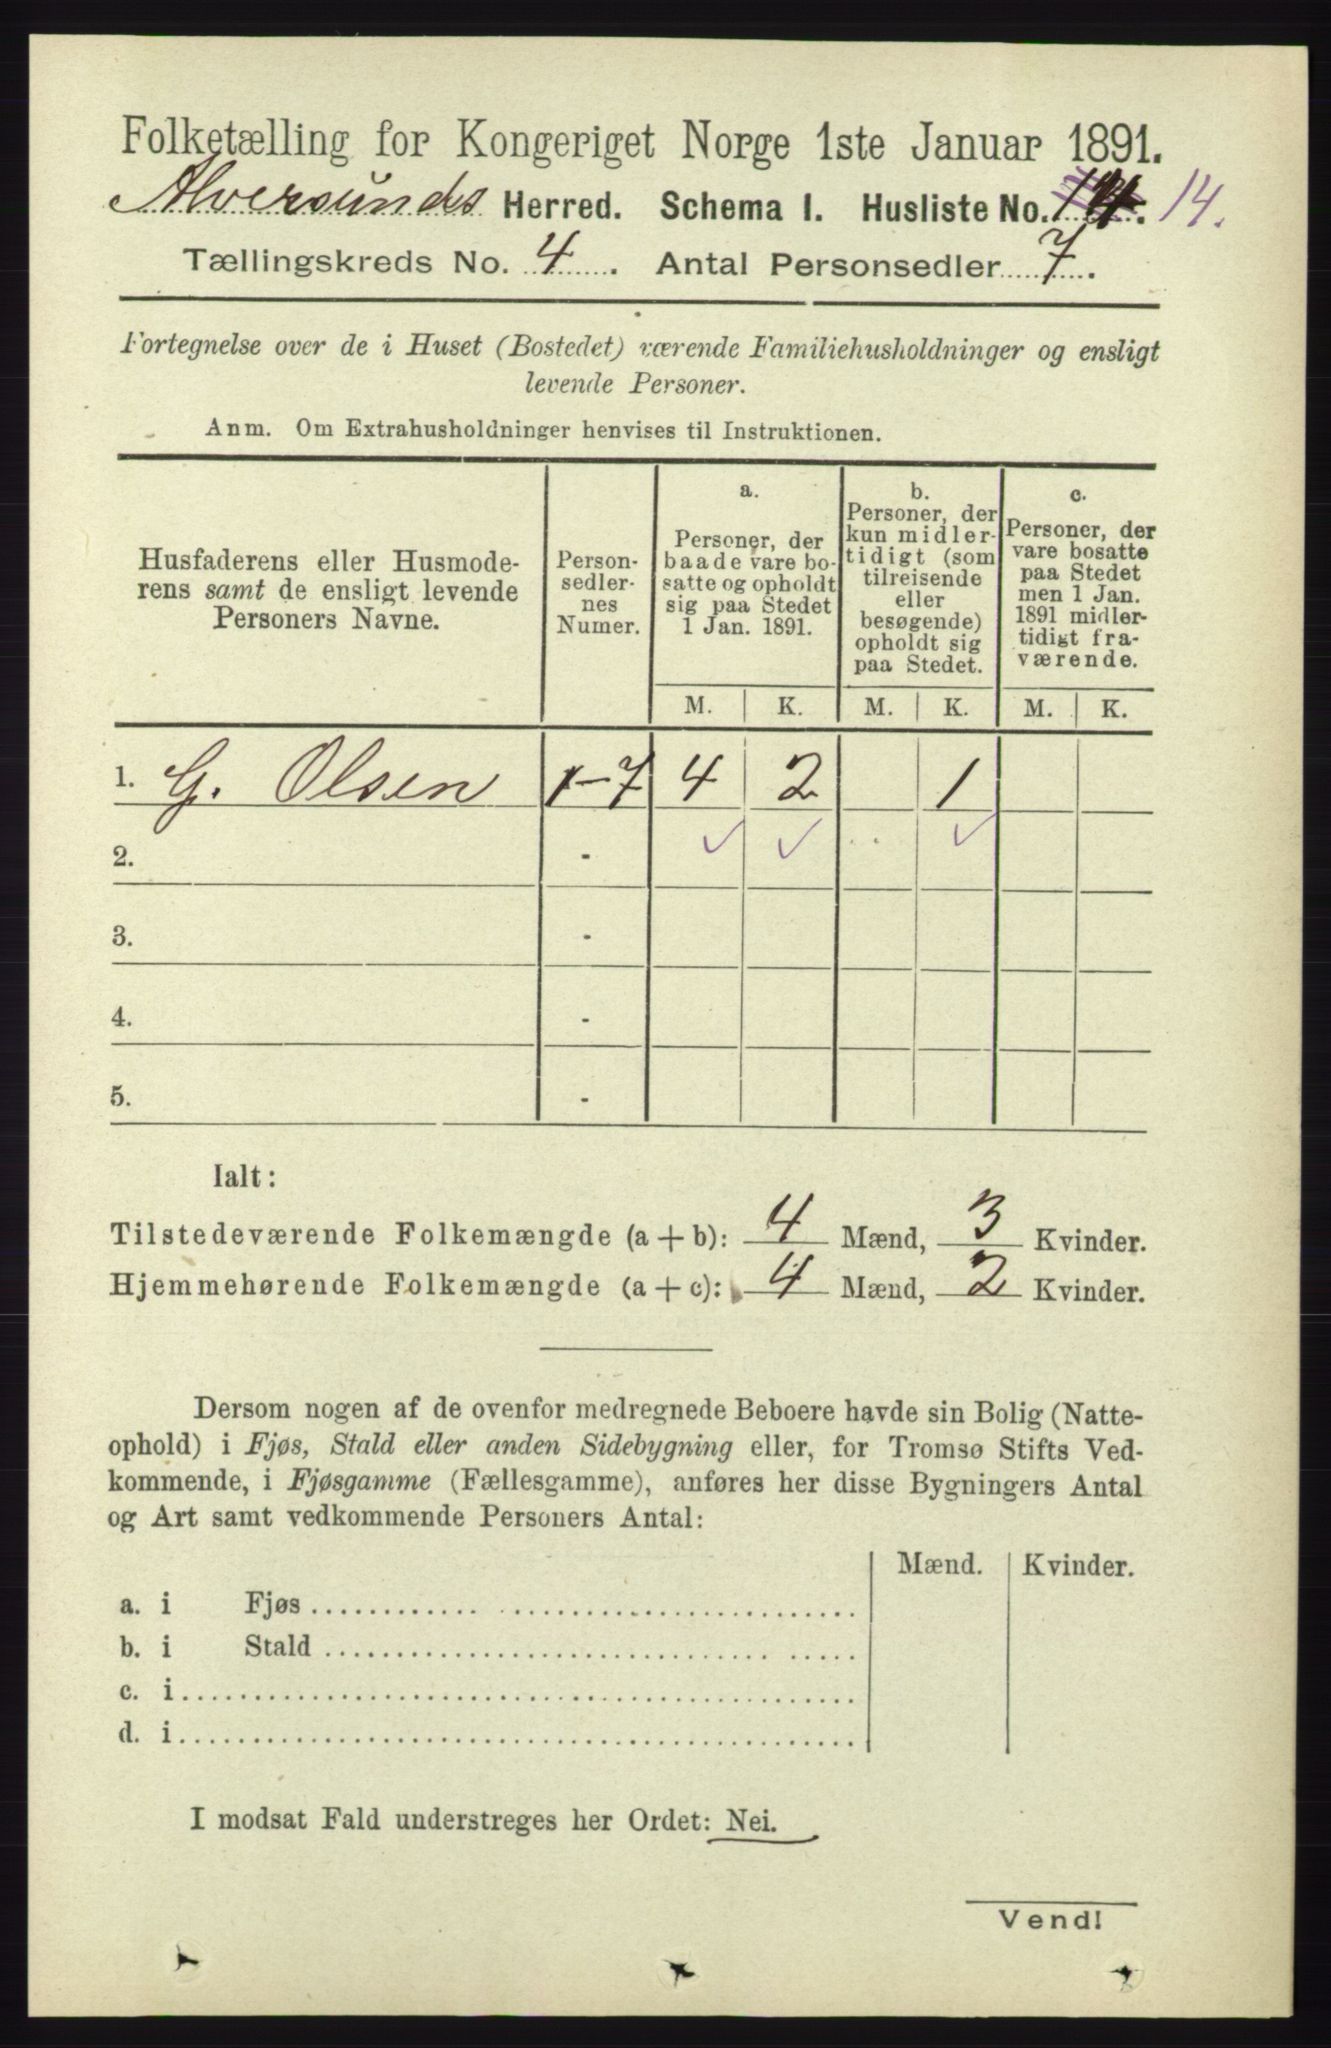 Folketælling for Kongeriget Norge 1ste Januar 1891.
Alversunds Herred. Schema I. Husliste No. 14. 14.
Tællingskreds No. 4. Antal Personsedler 7.
Fortegnelse over de i Huset (Bostedet) værende Familiehusholdninger og ensligt
levende Personer.
Anm. Om Extrahusholdninger henvises til Instruktionen.
Husfaderens eller Husmode-
rens samt de ensligt levende
Personers Navne.
Person-
sedler-
nes
Numer.
a.
Personer, der
baade vare bo-
satte og opholdt
sig paa Stedet
1 Jan. 1891.
b.
Personer, der
kun midler-
tidigt (som
tilreisende
eller
besøgende)
opholdt sig
paa Stedet.
c.
Personer, der
vare bosatte
paa Stedet
men 1 Jan.
1891 midler-
tidigt fra-
værende.
M. K. M. K. M. K.
1. G. Olsen 1-7 4 2 1
2. -
3. -
4. -
5. -
Ialt:
Tilstedeværende Folkemængde (a + b): 4 Mænd, 3 Kvinder.
Hjemmehørende Folkemængde (a + c): 4 Mænd, 2 Kvinder.
Dersom nogen af de ovenfor medregnede Beboere havde sin Bolig (Natte-
ophold) i Fjøs, Stald eller anden Sidebygning eller, for Tromsø Stifts Ved-
kommende, i Fjøsgamme (Fællesgamme), anføres her disse Bygningers Antal
og Art samt vedkommende Personers Antal:
Mænd. Kvinder.
a. i Fjøs
b. i Stald
c. i
d. i
I modsat Fald understreges her Ordet: Nei.
Vend!